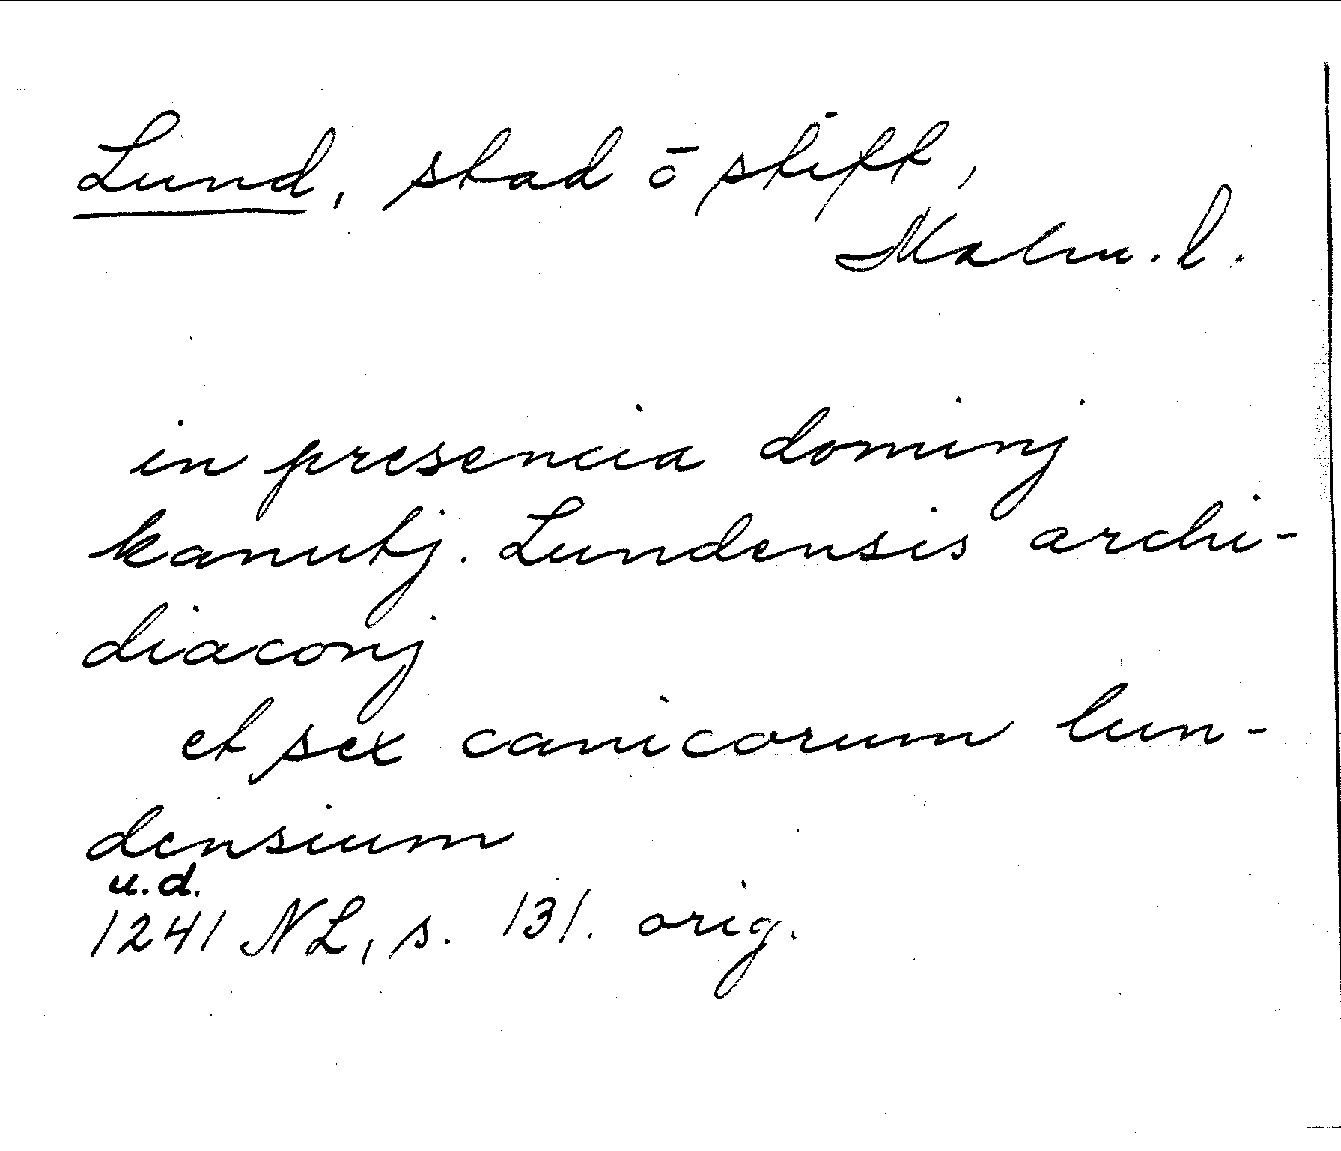 Lund, stad ō stift,
Malm. l.
in presencia dominj
kanutj. Lundensis archi-
diaconj
et sex canicorum lun-
densium
u.d.
1241 NL, s. 131. orig.